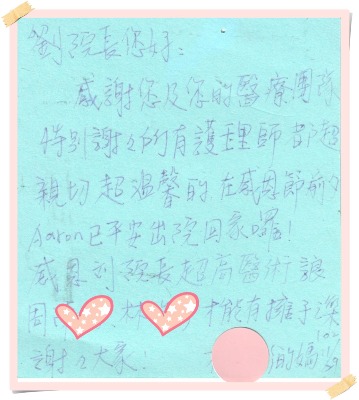 劉院長您好：
感謝您及你的醫療團隊
特別謝々所有護理師都超
親切超溫馨的 在感恩節前
Aaron已平安出院回家囉!
感恩劉院長超高醫術讓
才能有擁子
謝々大家! 的媽